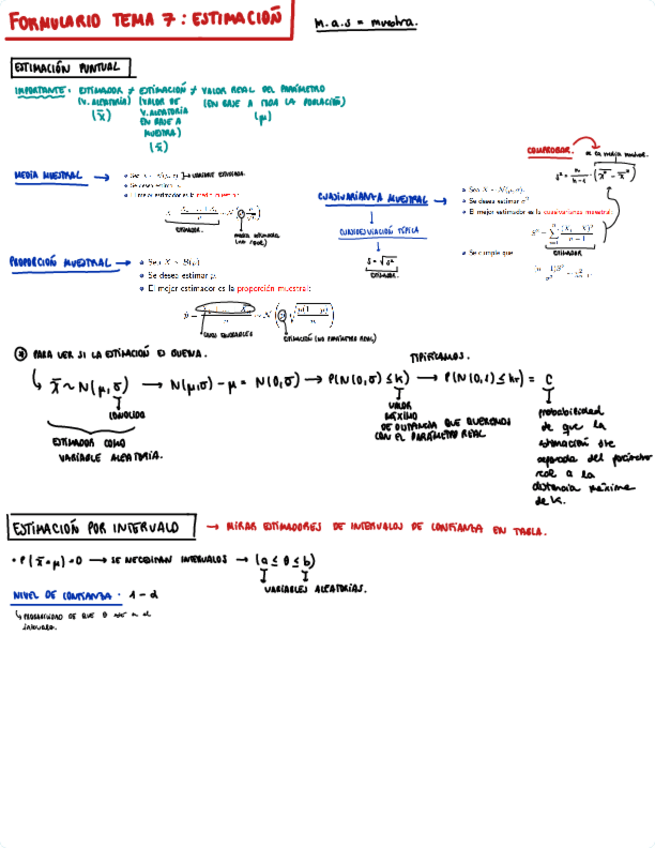 FORMULARIO TEMA 7: ESTIMACIÓN
m.a.s = muestra.
ESTIMACIÓN PUNTUAL
IMPORTANTE: ESTIMADOR ≠ ESTIMACIÓN ≠ VALOR REAL DEL PARÁMETRO
(V. ALEATORIA) (VALOR DE (EN BASE A TODA LA POBLACIÓN)
V. ALEATORIA
EN BASE A
MUESTRA)
(x̄) (μ)
(x̄)
MEDIA MUESTRAL →
Se desea estimar
El mejor estimador es la media muestral:
ESTIMADOR.
COMPROBAR.
CUASIVARIANZA MUESTRAL →
Sea X ~ N(μ, σ).
Se desea estimar σ²
El mejor estimador es la cuasivarianza muestral:
ESTIMADOR
Se cumple que
CUASIDESVIACIÓN TÍPICA
s = √s²
ESTIMADOR.
PROPORCIÓN MUESTRAL →
Sea X ~ B(p)
Se desea estimar p.
El mejor estimador es la proporción muestral:
CASOS FAVORABLES
ESTIMACIÓN (NO PARÁMETRO REAL)
PARA VER SI LA ESTIMACIÓN ES BUENA.
TIPIFICAMOS.
x̄ ~ N(μ, σ) → N(μ,σ) - μ = N(0,σ) → P(N(0,σ) ≤ k) → P(N(0,1) ≤ kσ) = C
CONOCIDO
ESTIMADOR COMO
VARIABLE ALEATORIA.
VALOR
MÁXIMO
DE DISTANCIA QUE QUEREMOS
CON EL PARÁMETRO REAL
probabilidad
de que la
estimación
separada del parámetro
real a la
distancia máxima
de k.
ESTIMACIÓN POR INTERVALO → MIRAR ESTIMADORES DE INTERVALOS DE CONFIANZA EN TABLA.
P(x̄=μ)=0 → SE NECESITAN INTERVALOS → (a ≤ θ ≤ b)
VARIABLES ALEATORIAS.
NIVEL DE CONFIANZA: 1-α
PROBABILIDAD DE QUE θ
INTERVALO.